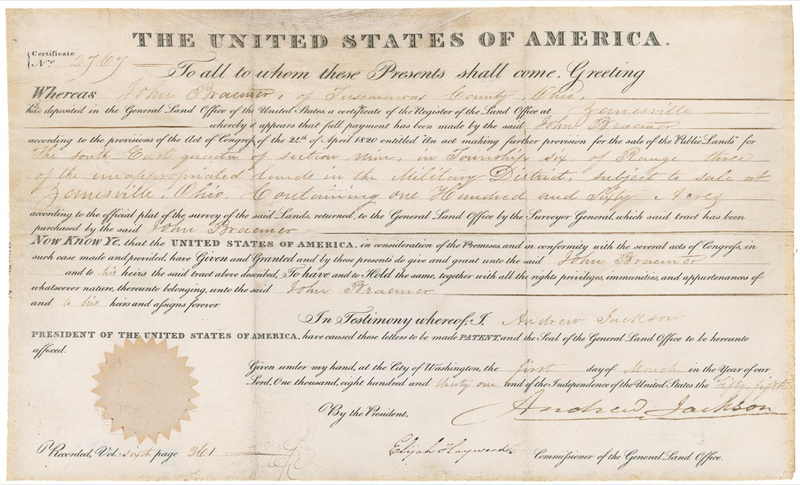 THE UNITED STATES OF AMERICA.
Certificate
No. 2767
To all to whom these Presents shall come, Greeting
Whereas John Braemer, of Tuscarawas County, Ohio,
has deposited in the General Land Office of the United States a certificate of the Register of the Land Office at Zanesville
whereby it appears that full payment has been made by the said John Braemer
according to the provisions of the Act of Congress of the 24th of April 1820 entitled An act making further provision for the sale of the Public Lands for
the South East quarter of section nine, in Township six, of Range three
of the unappropriated lands in the Military District, subject to sale at
Zanesville, Ohio, Containing one Hundred and Sixty Acres
according to the official plat of the survey of the said Lands, returned, to the General Land Office by the Surveyor General, which said tract has been
purchased by the said John Braemer
Now Know Ye, that the UNITED STATES OF AMERICA, in consideration of the Premises, and in conformity with the several acts of Congress, in
such case made and provided, have Given and Granted and by these presents do give and grant unto the said John Braemer
and to his heirs the said tract above described, To have and to Hold the same, together with all the rights privileges, immunities, and appurtenances of
whatsoever nature, thereunto belonging, unto the said John Braemer
and to his heirs and assigns forever.
In Testimony whereof, I, Andrew Jackson
PRESIDENT OF THE UNITED STATES OF AMERICA, have caused these letters to be made PATENT, and the Seal of the General Land Office to be hereunto
affixed.
Given under my hand, at the City of Washington, the first day of March in the Year of our
Lord, One thousand, eight hundred and thirty one and of the Independence of the United States the fifty fifth
By the President, Andrew Jackson
Recorded, Vol. sixth page 261 Elijah Hayward Commissioner of the General Land Office.